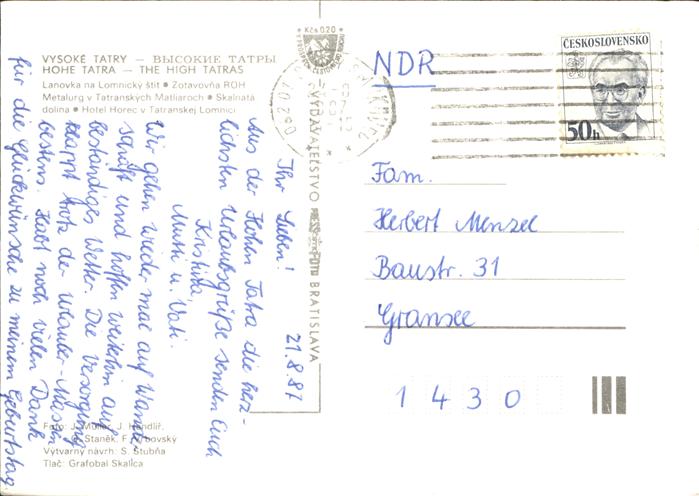 Kčs 0,20
VYSOKÉ TATRY — ВЫСОКИЕ ТАТРЫ
HOHE TATRA — THE HIGH TATRAS
Lanovka na Lomnický štít • Zotavovňa ROH
Metalurg v Tatranských Matliaroch • Skalnatá
dolina • Hotel Horec v Tatranskej Lomnici
21.8.87
Ihr Lieben!
Aus der Hohen Tatra die herz-
lichsten Urlaubsgrüße senden Euch
Kristina,
Mutti u. Vati.
Wir gehen wieder mal auf Wander
schaft und hoffen weiterhin auf
beständiges Wetter. Die Versorgung
klappt trotz der Urlauber-Massen
bestens. Habt noch vielen Dank
für die Glückwünsche zu meinem Geburtstag.
VYDAVATEĽSTVO
FOTO BRATISLAVA
NDR
ČESKOSLOVENSKO
50h
Fam.
Herbert Menzel
Baustr. 31
Gransee
1430
Foto: J. Müller, J. Handlíř,
Staněk, F. Vrbovský
Výtvarný návrh: S. Štubňa
Tlač: Grafobal Skalica